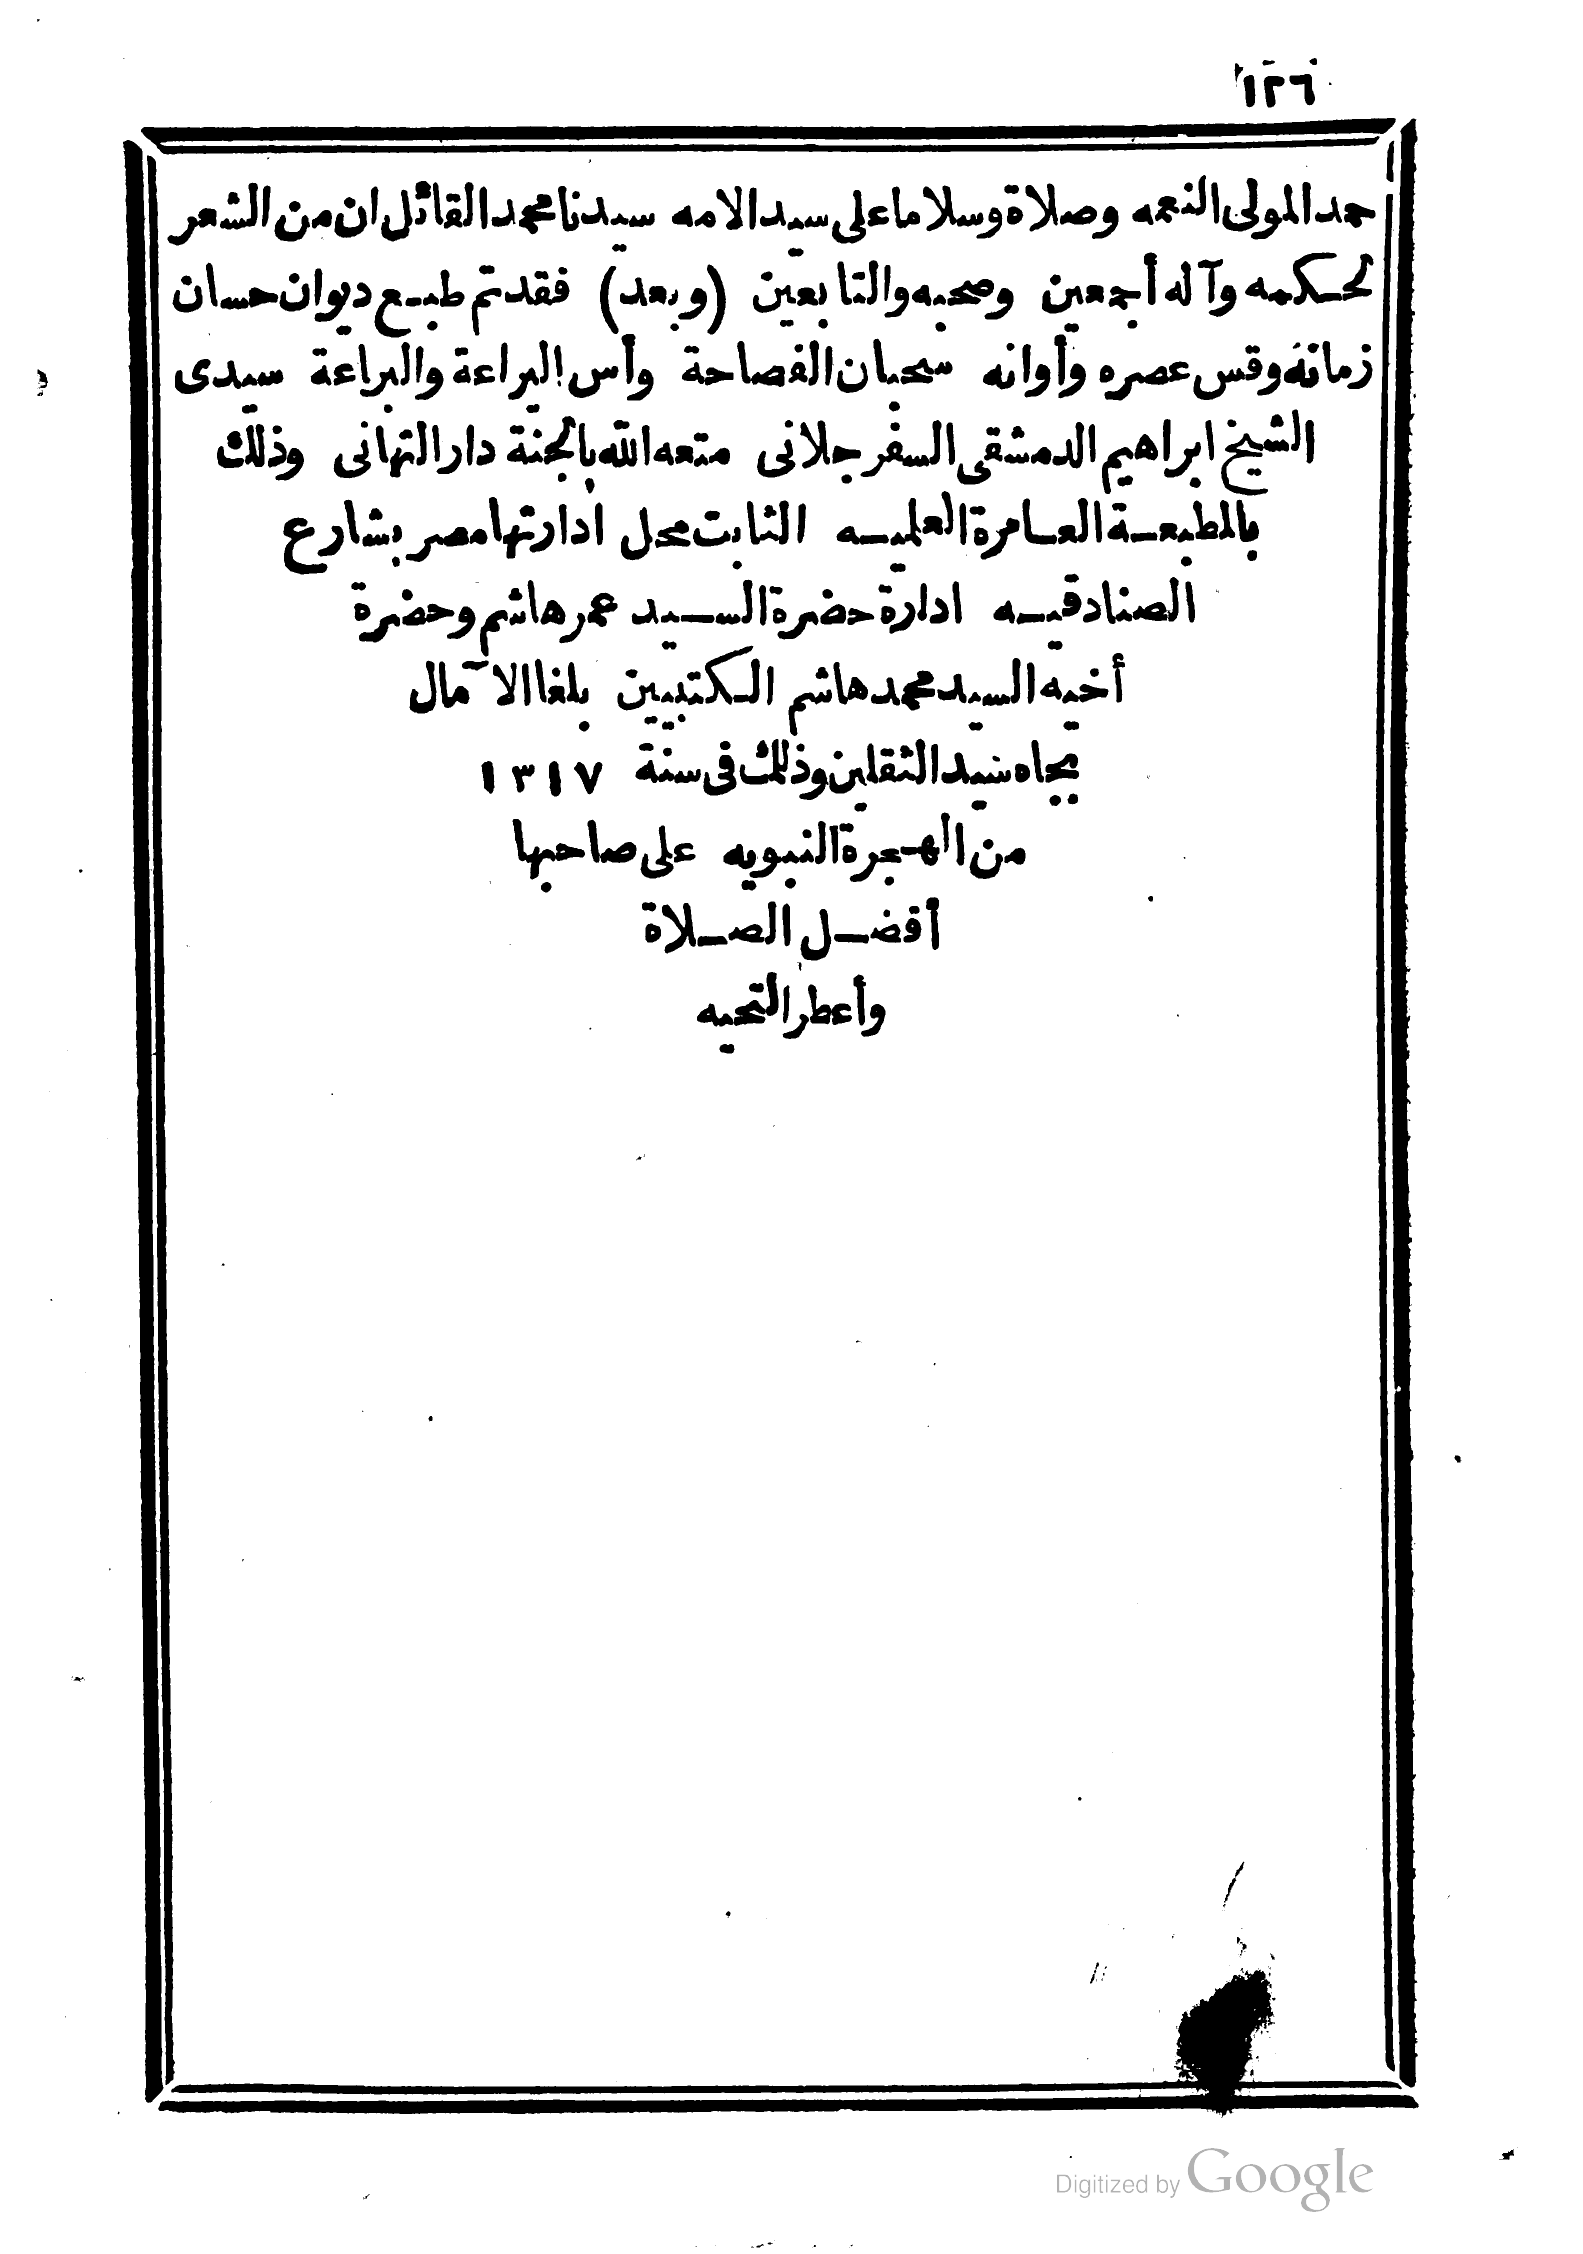 ١٢٦
حمد المولى النعمه وصلاة وسلاما على سيد الامه سيدنا محمد القائل ان من الشعر
لحكمه وآله أجمعين وصحبه والتابعين (وبعد) فقد تم طبع ديوان حسان
زمانه وقس عصره وأوانه سحبان الفصاحة وأس البراعة والبراعة سيدى
الشيخ ابراهيم الدمشقى السفرجلانى متعه الله بالجنة دار التهانى وذلك
بالمطبعة العامرة العلميه الثابت محل ادارتها مصر بشارع
الصنادقيه ادارة حضرة السيد عمر هاشم وحضرة
أخيه السيد محمد هاشم الكتبيين بلغا الآمال
بجاه سيد الثقلين وذلك فى سنة ١٣١٧
من الهجرة النبويه على صاحبها
أفضل الصلاة
وأعطر التحيه
Digitized by Google